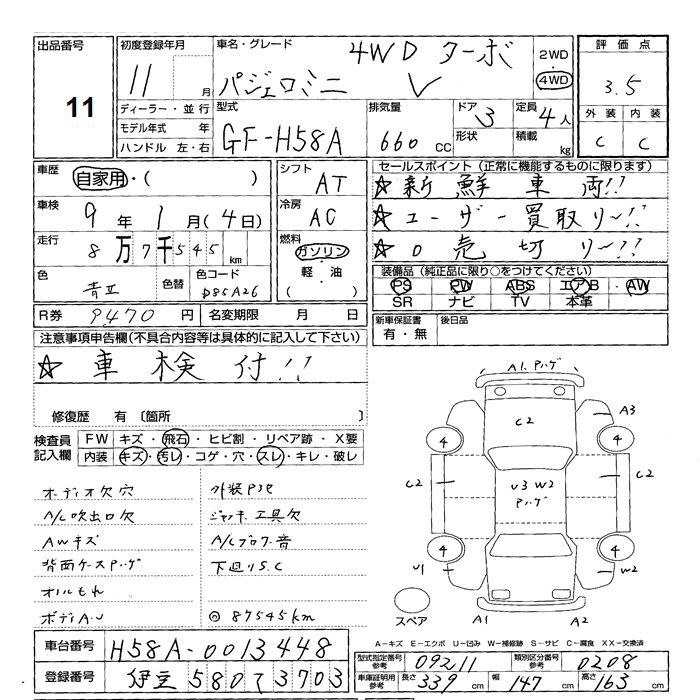 出品番号
11
初度登録年月
11 月
ディーラー・並行
モデル年式 年
ハンドル 左・右
車名・グレード
4WD ターボ
パジェロミニ V
2WD
4WD
型式
GF-H58A
排気量
660 CC
ドア
3
形状
定員
4人
積載
kg
評価点
3.5
外装 内装
C C
車歴
自家用・( )
車検
9年1月(4日)
走行
8万7千545km
色
青エ
色替
色コード
シフト
AT
冷房
AC
燃料
ガソリン
軽・油
( )
セールスポイント(正常に機能するものに限ります)
☆新鮮車両!!
☆ユーザー買取り〜!!
☆0売切り〜!!
装備品(純正品に限り○をつけてください)
PS PW ABS エアB ・ AW
SR ナビ TV 本革
R券 9470円
名変期限 月 日
新車保証書
有・無
後日品
注意事項申告欄(不具合内容等は具体的に記入して下さい)
☆車検付!!
修復歴 有〔箇所 〕
検査員記入欄
FW キズ・飛石・ヒビ割・リペア跡・X要
内装 キズ・汚レ・コゲ・穴・スレ・キレ・破レ
オーディオ欠穴
A/C吹出口欠
AWキズ
背面ケースハゲ
オイルもれ
ボディA・U
外装P3セ
ジャッキ工具欠
A/Cブロワ音
下廻りS.C
◎87545km
A1.Pハゲ
C2
A3
4
4
C2
C2
U3 W2
Pハゲ
4
4
U1
W2
A1
A2
スペア
A-キズ E-エクボ U-凹み W-補修跡 S-サビ C-腐食 XX-交換済
車台番号 H58A-0013448
登録番号 伊豆 580 て 3703
型式指定番号参考 09211
類別区分番号参考 0208
車庫証明用参考
長さ 339cm
幅 147cm
高さ 163cm